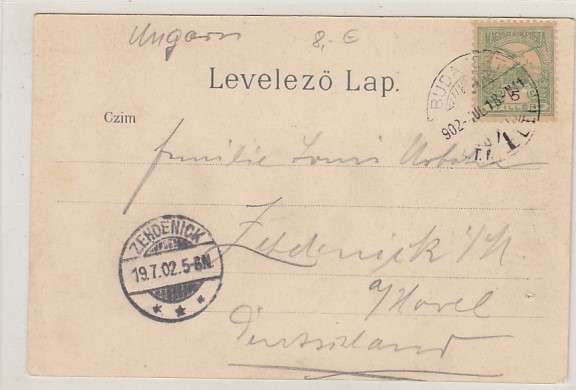 Ungarn 8,- €
MAGYAR KIR. POSTA
Levelező Lap.
BUDA
5
902 JUL 18
Czim
Familie Louis
ZEHDENICK
19.7.02.5-6N.
Zehdenick
a/Havel
Deutschland